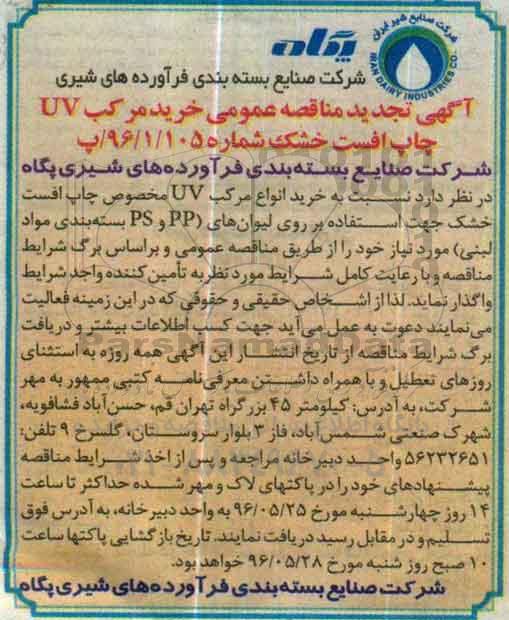 شرکت صنایع شیر ایران
IRAN DAIRY INDUSTRIES CO.
پگاه
شرکت صنایع بسته بندی فرآورده های شیری
آگهی تجدید مناقصه عمومی خرید مرکب UV
چاپ افست خشک شماره ۹۶/۱/۱۰۵/پ
شرکت صنایع بسته‌بندی فرآورده‌های شیری پگاه
در نظر دارد نسبت به خرید انواع مرکب UV مخصوص چاپ افست
خشک جهت استفاده بر روی لیوان‌های (PP و PS بسته‌بندی مواد
لبنی) مورد نیاز خود را از طریق مناقصه عمومی و براساس برگ شرایط
مناقصه و با رعایت کامل شرایط مورد نظر به تأمین کننده واجد شرایط
واگذار نماید. لذا از اشخاص حقیقی و حقوقی که در این زمینه فعالیت
می‌نمایند دعوت به عمل می‌آید جهت کسب اطلاعات بیشتر و دریافت
برگ شرایط مناقصه از تاریخ انتشار این آگهی همه روزه به استثنای
روزهای تعطیل و با همراه داشتن معرفی‌نامه کتبی ممهور به مهر
شرکت، به آدرس: کیلومتر ۴۵ بزرگراه تهران قم، حسن‌آباد فشافویه،
شهرک صنعتی شمس‌آباد، فاز ۳ بلوار سروستان، گلسرخ ۹ تلفن:
۵۶۲۳۲۶۵۱ واحد دبیرخانه مراجعه و پس از اخذ شرایط مناقصه
پیشنهادهای خود را در پاکتهای لاک و مهر شده حداکثر تا ساعت
۱۴ روز چهارشنبه مورخ ۹۶/۰۵/۲۵ به واحد دبیرخانه، به آدرس فوق
تسلیم و در مقابل رسید دریافت نمایند. تاریخ بازگشایی پاکتها ساعت
۱۰ صبح روز شنبه مورخ ۹۶/۰۵/۲۸ خواهد بود.
شرکت صنایع بسته‌بندی فرآورده‌های شیری پگاه
ParsNamadData